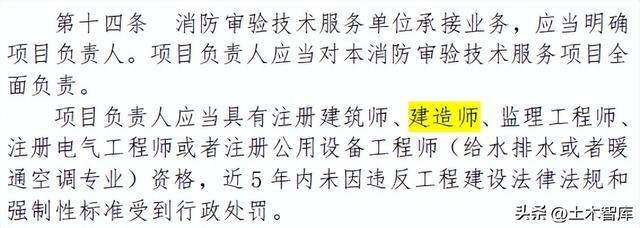 第十四条 消防审验技术服务单位承接业务，应当明确
项目负责人。项目负责人应当对本消防审验技术服务项目全
面负责。
项目负责人应当具有注册建筑师、建造师、监理工程师、
注册电气工程师或者注册公用设备工程师（给水排水或者暖
通空调专业）资格，近5年内未因违反工程建设法律法规和
强制性标准受到行政处罚。
头条@土木智库